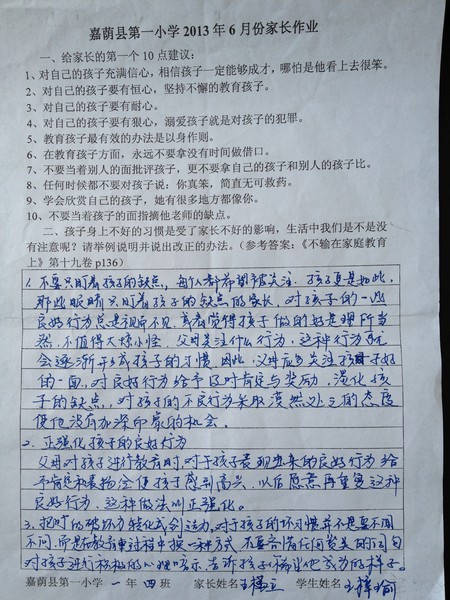 嘉荫县第一小学2013年6月份家长作业
一、给家长的第一个10点建议：
1、对自己的孩子充满信心，相信孩子一定能够成才，哪怕是他看上去很笨。
2、对自己的孩子要有恒心，坚持不懈的教育孩子。
3、对自己的孩子要有耐心。
4、对自己的孩子要有狠心，溺爱孩子就是对孩子的犯罪。
5、教育孩子最有效的办法是以身作则。
6、在教育孩子方面，永远不要拿没有时间做借口。
7、不要当着别人的面批评孩子，更不要拿自己的孩子和别人的孩子比。
8、任何时候都不要对孩子说，你真笨，简直无可救药。
9、学会欣赏自己的孩子，她有很多地方都像你。
10、不要当着孩子的面指摘他老师的缺点。
二、孩子身上不好的习惯是受了家长不好的影响，生活中我们是不是没
有注意呢？请举例说明并说出改正的办法。（参考答案：《不输在家庭教育
上》第十九卷 p136）
1. 不要只盯着孩子的缺点，每个人都希望被关注，孩子更是如此，
那些眼睛只盯着孩子的缺点的家长，对孩子的一些
良好行为总是视而不见，或者觉得孩子做的好是理所当
然，不值得大惊小怪，父母关注什么行为，这种行为就
会逐渐形成孩子的习惯，因此，父母应当关注孩子好
的一面，对良好行为给予及时肯定与奖励，淡化孩
子的缺点，对孩子的不良行为采取漠然处之的态度
使他没有加深印象的机会。
2. 正强化孩子的良好行为
父母对孩子进行教育时，对于孩子表现出来的良好行为给
予肯定和表扬会使孩子感到高兴，以后愿意再重复这种
良好行为，这种做法叫正强化。
3. 把时的破坏力转化成创造力，对于孩子的坏习惯并不是要不闻
不问，而是在教育过程中换一种方式，不要吝啬任何赞美的词句
对孩子进行积极的心理暗示，告诉孩子稀望他成为的样子。
嘉荫县第一小学 一 年 四 班 家长姓名 学生姓名